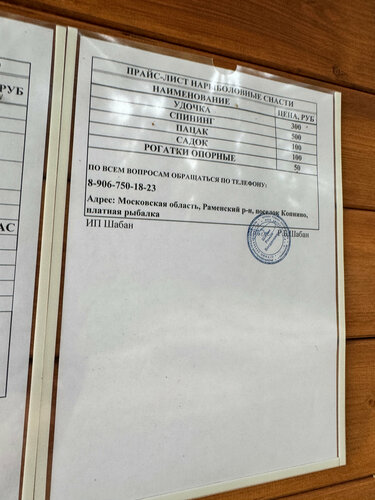 РУБ
АС
ПРАЙС-ЛИСТ НА РЫБОЛОВНЫЕ СНАСТИ
НАИМЕНОВАНИЕ ЦЕНА, РУБ
УДОЧКА 300
СПИНИНГ 500
ПАЦАК 100
САДОК 100
РОГАТКИ ОПОРНЫЕ 50
ПО ВСЕМ ВОПРОСАМ ОБРАЩАТЬСЯ ПО ТЕЛЕФОНУ:
8-906-750-18-23
Адрес: Московская область, Раменский р-н, поселок Конкино,
платная рыбалка
ИП Шабан Р.Б.Шабан